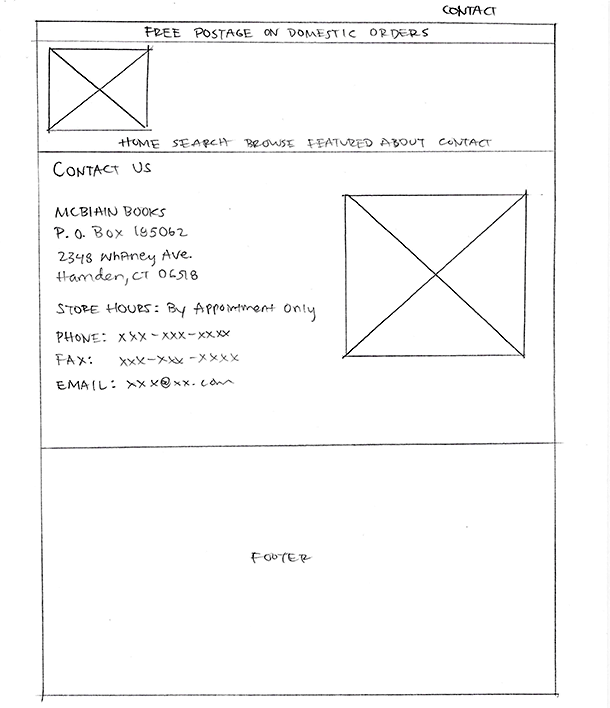 CONTACT
FREE POSTAGE ON DOMESTIC ORDERS
HOME SEARCH BROWSE FEATURED ABOUT CONTACT
CONTACT US
MCBLAIN BOOKS
P. O. Box 185062
2348 Whaney Ave.
Hamden, CT 06518
STORE HOURS: By Appointment Only
PHONE: xxx-xxx-xxxx
FAX: xxx-xxx-xxxx
EMAIL: xxx@xx.com
FOOTER